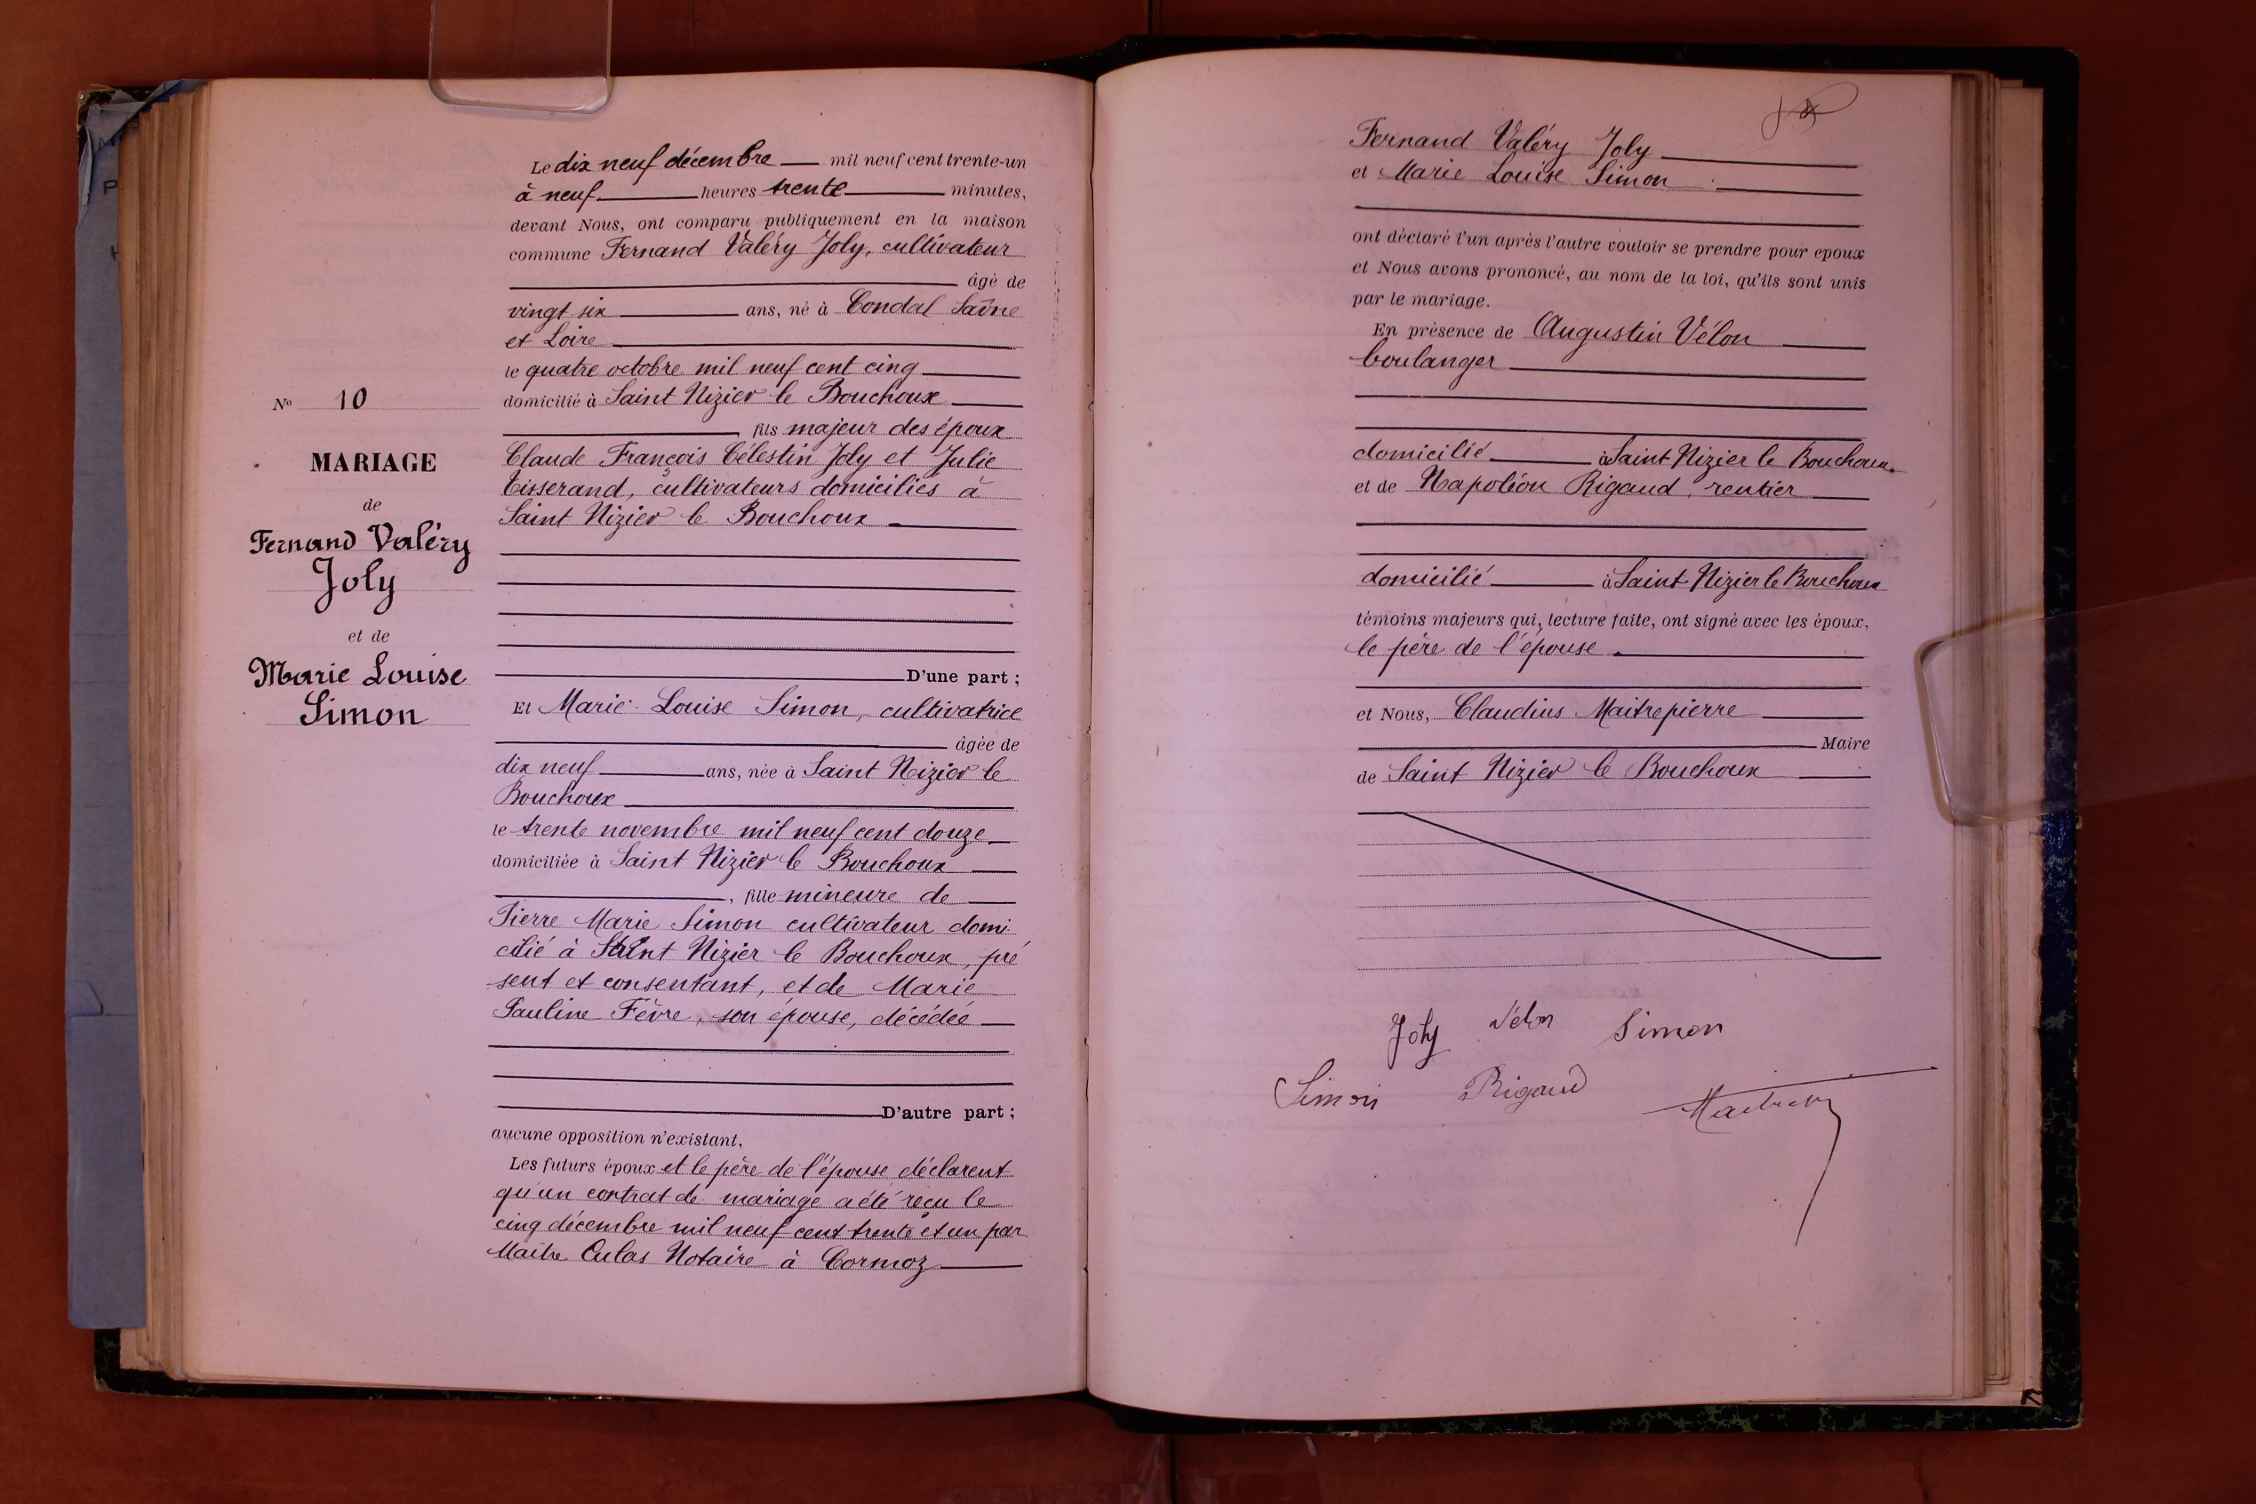 N° 10
MARIAGE
de
Fernand Valéry
Joly
et de
Marie Louise
Simon
Le dix neuf décembre mil neuf cent trente-un
à neuf heures trente minutes,
devant Nous, ont comparu publiquement en la maison
commune Fernand Valéry Joly, cultivateur
âgé de
vingt six ans, né à Condal Saône
et Loire
le quatre octobre mil neuf cent cinq
domicilié à Saint Nizier le Bouchoux
fils majeur des époux
Claude François Célestin Joly et Julie
Tisserand, cultivateurs domiciliés à
Saint Nizier le Bouchoux
D'une part ;
Et Marie Louise Simon, cultivatrice
âgée de
dix neuf ans, née à Saint Nizier le
Bouchoux
le trente novembre mil neuf cent douze
domiciliée à Saint Nizier le Bouchoux
, fille mineure de
Pierre Marie Simon cultivateur domi
cilié à Saint Nizier le Bouchoux, pré
sent et consentant, et de Marie
Pauline Fèvre, son épouse, décédée
D'autre part ;
aucune opposition n'existant,
Les futurs époux et le père de l'épouse déclarent
qu'un contrat de mariage a été reçu le
cinq décembre mil neuf cent trente et un par
Maître Culas Notaire à Cormoz
Fernand Valéry Joly
et Marie Louise Simon
ont déclaré l'un après l'autre vouloir se prendre pour époux
et Nous avons prononcé, au nom de la loi, qu'ils sont unis
par le mariage.
En présence de Augustin Vélon
boulanger
domicilié à Saint Nizier le Bouchoux
et de Napoléon Rigaud, rentier
domicilié à Saint Nizier le Bouchoux
témoins majeurs qui, lecture faite, ont signé avec les époux,
le père de l'épouse
et Nous, Claudius Maitrepierre
Maire
de Saint Nizier le Bouchoux
Joly Vélon Simon
Simon Rigaud